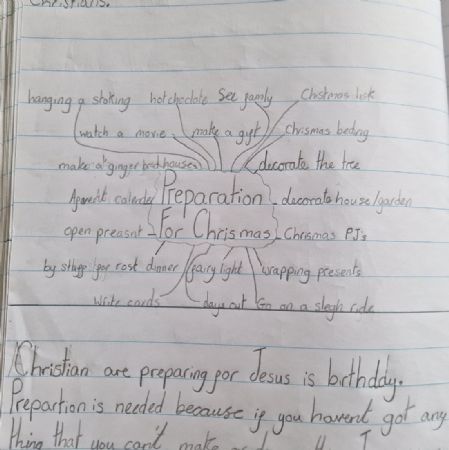 Christians.
hanging a stoking hot chocolate See family Christmas
watch a movie make a gift Chrismas beding
make a ginger bed houses decorate the tree
calender Preparation decorate house/garden
open preasnt For Chrismas Chrismas PJs
by for rost dinner fairy light wrapping presents
Write cards days out Go on a slegh ride
Christian are preparing for Jesus is birthday.
Prepartion is needed because if you havent got any
thing that you can't make